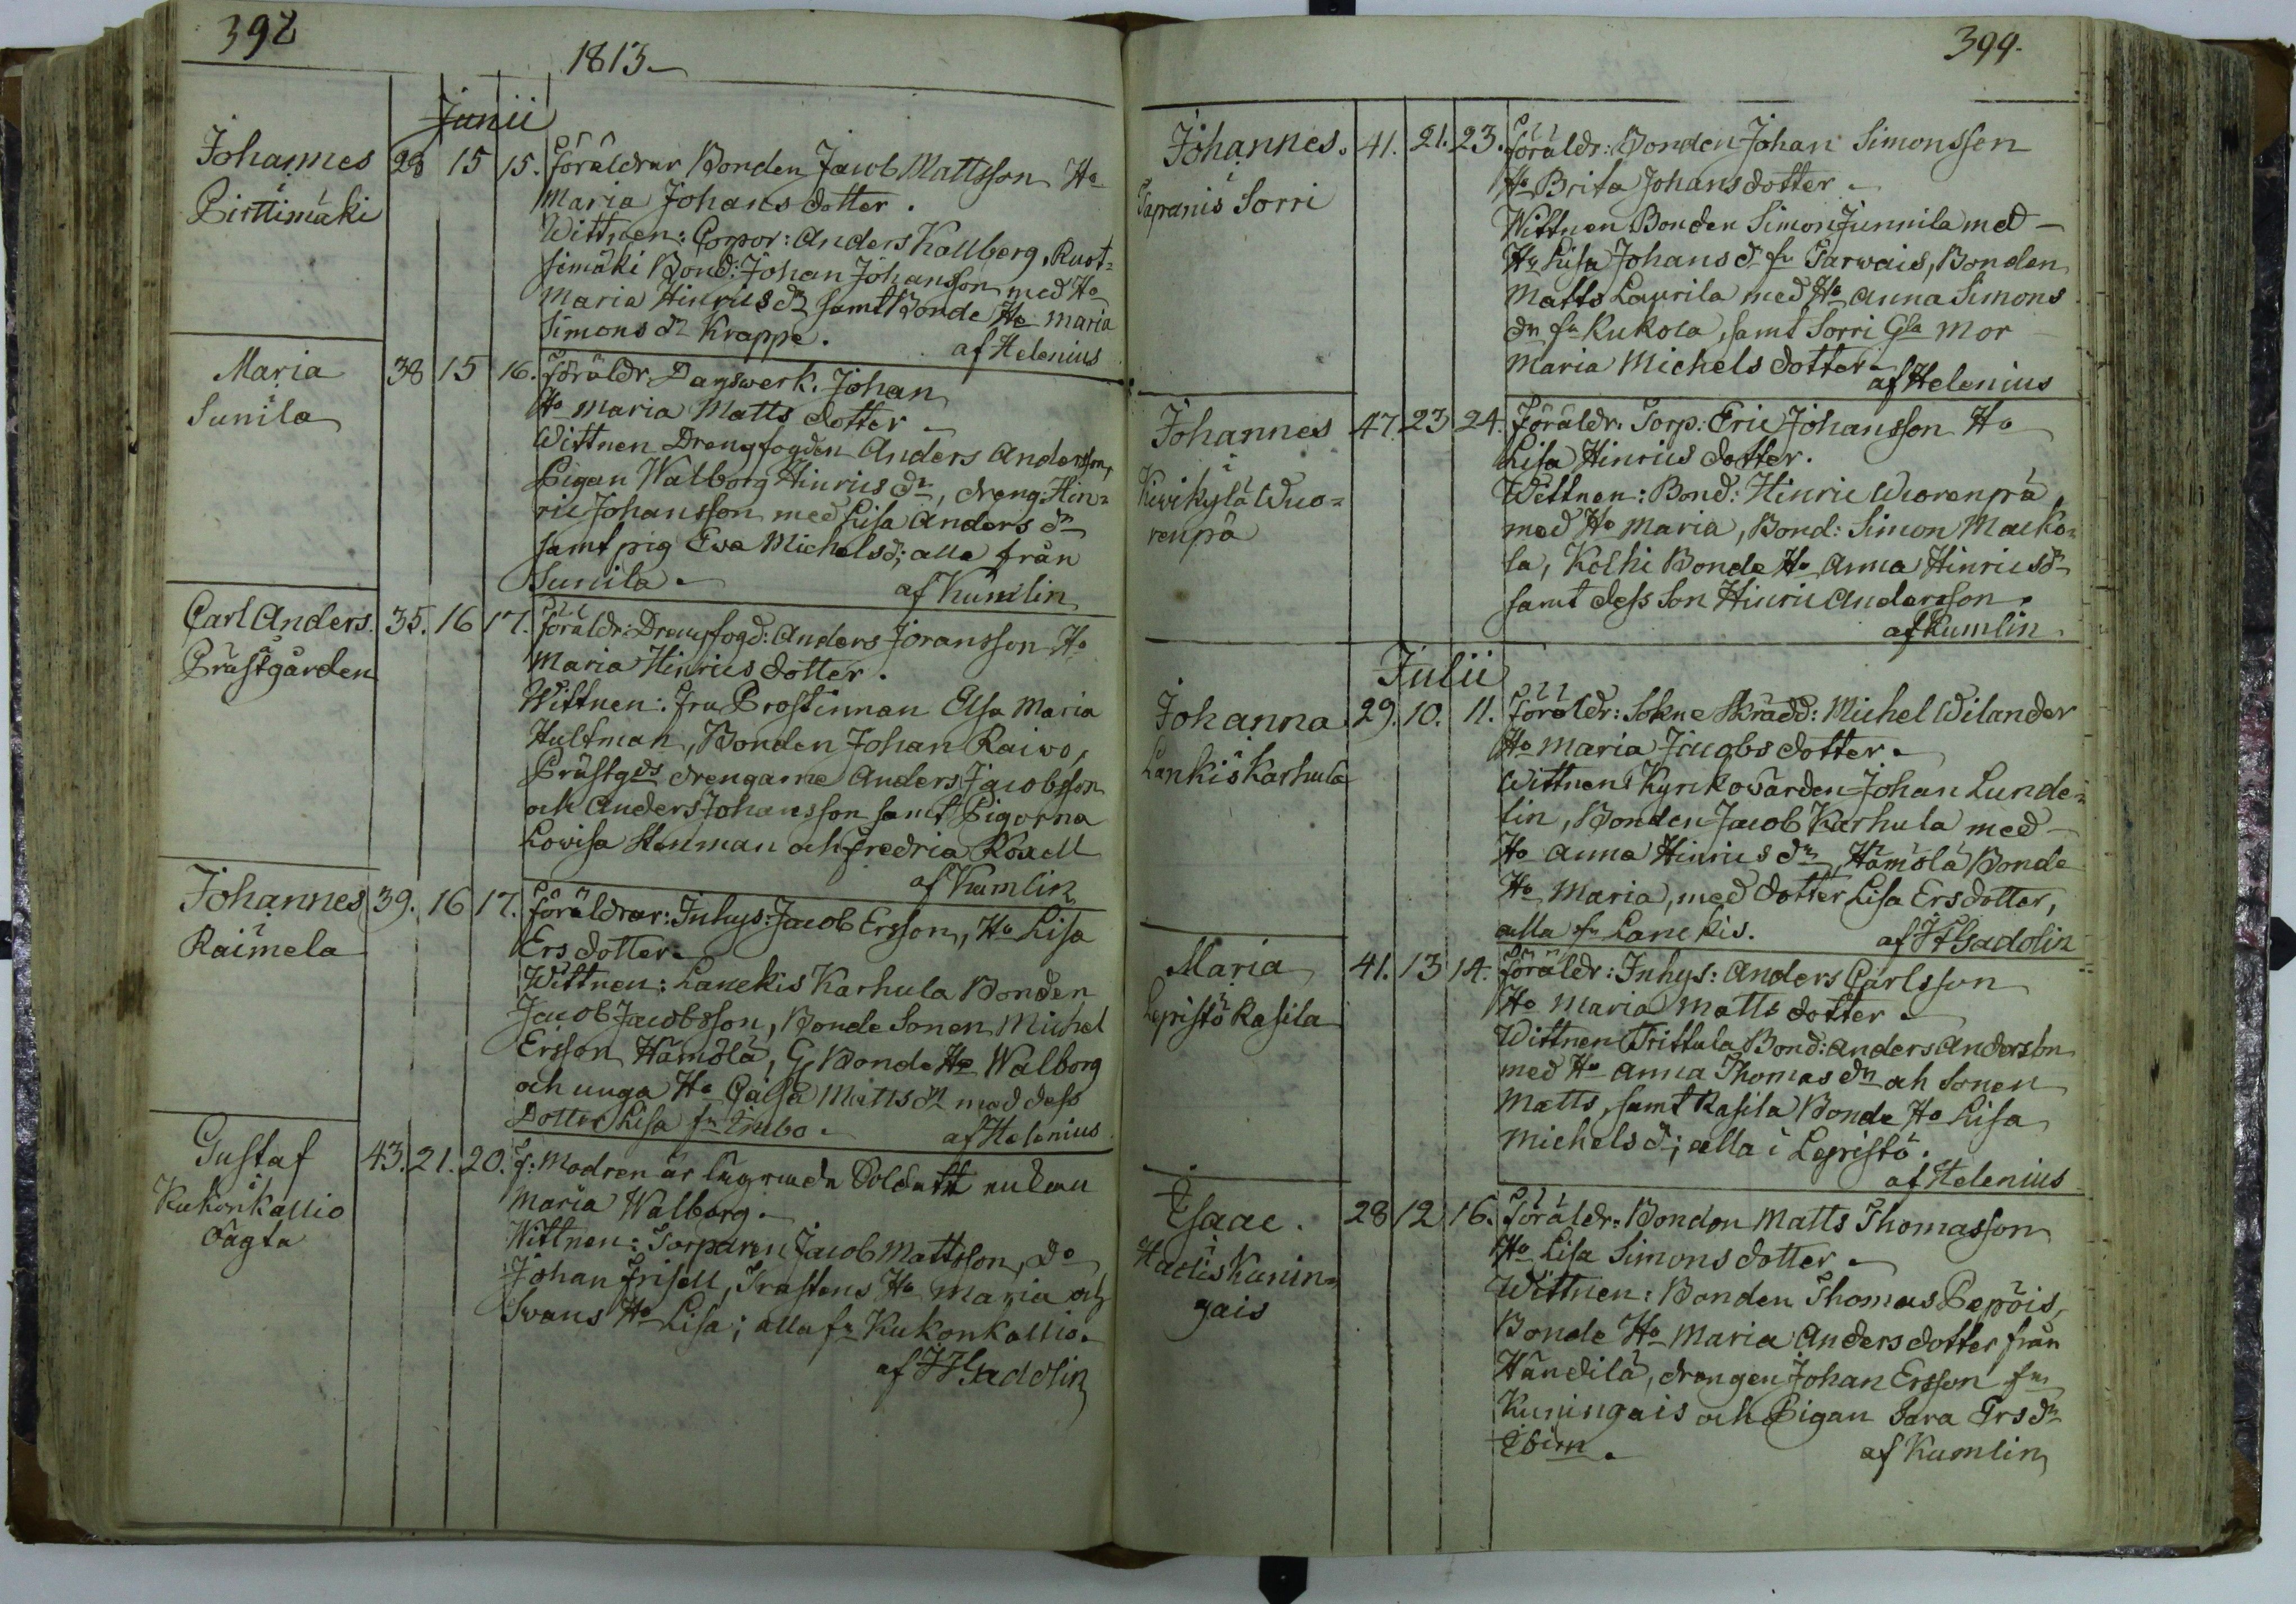 392
1813.
Junii
Johannes
i
Pirttimäki
28 15 15. Föräldrar Bonden Jacob Mattsson Ho
Maria Johans dotter.
Wittnen: Corpor: Anders Kallberg, Ruot=
simäki Bond: Johan Johansson med Ho
Maria Hinrics dr samt Bonde Ho Maria
Simons dr Krappe.
af Helenius
Maria
i
Sunila
38 15 16. Föräldr Dagswerk. Johan
Ho Maria Matts dotter
Wittnen Drengfogden Anders Andersson,
Pigan Walborg Hinrics dr, dreng: Hin=
ric Johansson med Lisa Anders dr
samt pig Ewa Michelsd; alla från
Sunila.
af Kumlin
Carl Anders.
å
Prästgården
35. 16 17. Föräldr: Drengfogd: Anders Joransson Ho
Maria Hinrics dotter.
Wittnen: Fru Prostinnan Elsa Maria
Hultman, Bonden Johan Raiwo,
Prästgds drengarne Anders Jacobsson
och Anders Johansson samt Pigorna
Lovisa Stenman och Fredrica Roxell
af Kumlin
Johannes
i
Raimela
39. 16 17. Föräldrar: Inhys: Jacob Ersson, Ho Lisa
Ers dotter.
Wittnen: Lanekis Karhula Bonden
Jacob Jacobsson, Bonde Sonen Michel
Ersson Hämölä, G. Bonde Ho Walborg
och unga Ho Caisa Matts dr med dess
Dotter Lisa fn
af Helenius
Gustaf
i
Kukonkallio
oägta
43. 21. 20. F: Modren är lägrade Soldatt enkan
Maria Walborg.
Wittnen: Torparen Jacob Mattsson, do
Johan Frisell, Trastens Ho Maria och
Svans Ho Lisa; alla fn Kukonkallio.
af JFGadolin
399.
Johannes.
i
Tapanis Sorri
41. 21. 23. Föräldr: Bonden Johan Simonsson
Ho Brita Johans dotter.
Wittnen Bonden Simon Junnila med
Ho Lisa Johans dr fn Tarwais, Bonden
Matts Laurila med Ho Anna Simons
dn fn Kukola, samt Sorri Gla Mor
Maria Michels dotter.
af Helenius
Johannes
i
Kiwikylä Wuo=
renpä
47. 23 24. Föräldr: Torp: Eric Johansson Ho
Lisa Hinrics dotter.
Wittnen: Bond: Hinric Wuorenpä
med Ho Maria, Bond: Simon Macko=
la, Kolhi Bonde Ho Anna Hinricsdr
samt dess Son Hinric Andersson.
af Kumlin.
Julii
Johanna
i
Lankis Karhula
29. 10. 11. Föräldr: Sokne Skrädd: Michel Wilander
Ho Maria Jacobs dotter.
Wittnen Kyrkowärden Johan Lunde=
lin, Bonden Jacob Karhula med
Ho Anna Hinrics dr, Hämölä Bonde
Ho Maria, med dotter Lisa Ersdotter,
alla fn Lanckis.
af JFGadolin
Maria
i
Lepistö Rasila
41. 13 14. Föräldr: Inhys: Anders Carlsson
Ho Maria Matts dotter
Wittnen Trittula Bond: Anders Andersson
med Ho Anna Thomas dr och Sonen
Matts, samt Rasila Bonde Ho Lisa
Michels d; alla i Lepistö.
af Helenius
Isaac.
i
Hadis Kunin=
gais
28 12 16. Föräldr: Bonden Matts Thomasson
Ho Lisa Simons dotter
Wittnen: Bonden Thomas Pepöis,
Bonde Ho Maria Anders dotter från
Händilä, drengen Johan Ersson fn
Kuningais och Pigan Sara Ers dr
Ibim.
af Kumlin